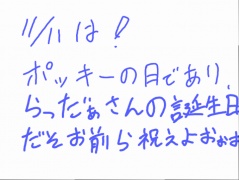 11/11は!
ポッキーの日であり、
らっだぁさんの誕生日
だぞお前ら祝えよおぉぉ